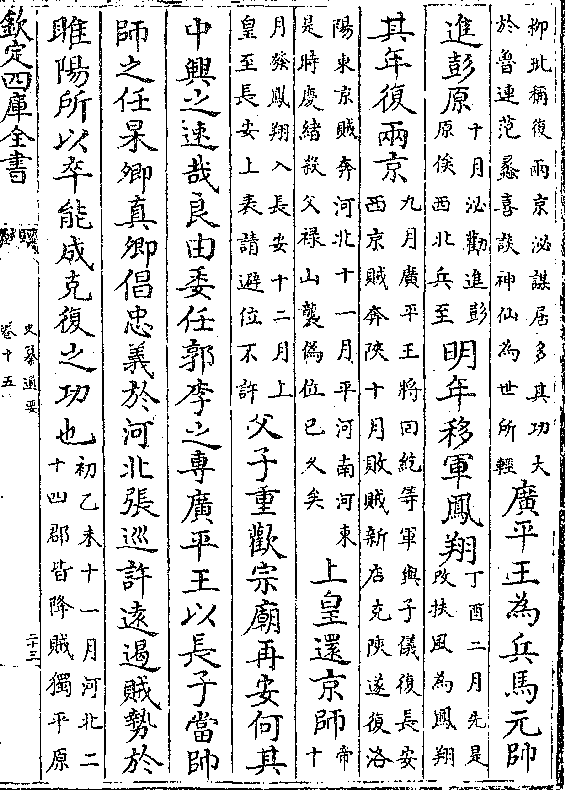 柳玭稱復兩京泌謀居多其功大
於魯連范蠡喜談神仙為世所輕
廣平王為兵馬元帥
進彭原
十月泌勸進彭
原俟西北兵至
明年移軍鳳翔
丁酉二月先是
改扶風為鳳翔
其年復兩京
九月廣平王將回紇等軍與子儀復長安
西京賊奔陝十月敗賊新店克陝遂復洛
陽東京賊奔河北十一月平河南河東
是時慶緒殺父祿山襲偽位已久矣
上皇還京師
帝
十
月發鳳翔入長安十二月上
皇至長安上表請避位不許
父子重歡宗廟再安何其
中興之速哉良由委任郭李之專廣平王以長子當帥
師之任杲卿真卿倡忠義於河北張巡許遠遏賊勢於
睢陽所以卒能成克復之功也
初乙未十一月河北二
十四郡皆降賊獨平原
欽定四庫全書
史纂通要
卷十五
二十三